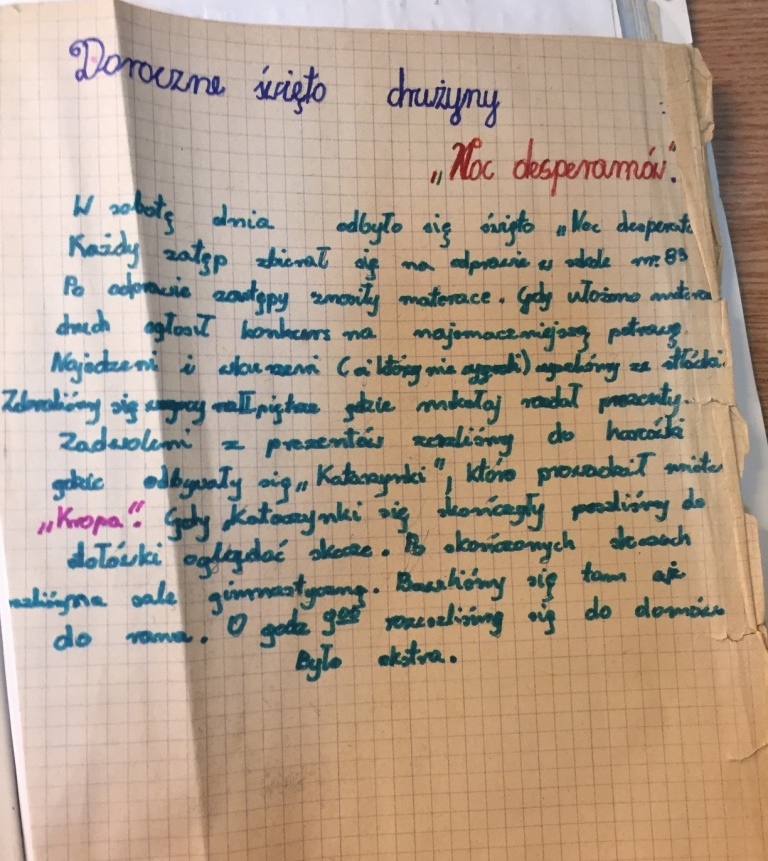 Doroczne święto drużyny
„Noc desperamów".
W sobotę dnia odbyło się święto „Noc desperat
Każdy zastęp zbierał się na odprawie w szkole nr. 89
Po odprawie zastępy znosiły materace. Gdy ułożono matera
druh ogłosił konkurs na najsmaczniejszą potrawę.
Najedzeni i (ci którzy nie) ze stołówki.
Zebraliśmy się na II piętrze gdzie mikołaj rozdał prezenty.
Zadwoleni z prezentów zeszliśmy do harcówki
gdzie odbywały się „Katarzynki", które prowadził
„Kropa". Gdy Katarzynki się skończyły poszliśmy do
stołówki oglądać skecze. Po skończonych skeczach
sale gimnastyczną. Bawiliśmy się tam aż
do rana. O godz 9⁰⁰ rozeszliśmy się do domów
Było ekstra.